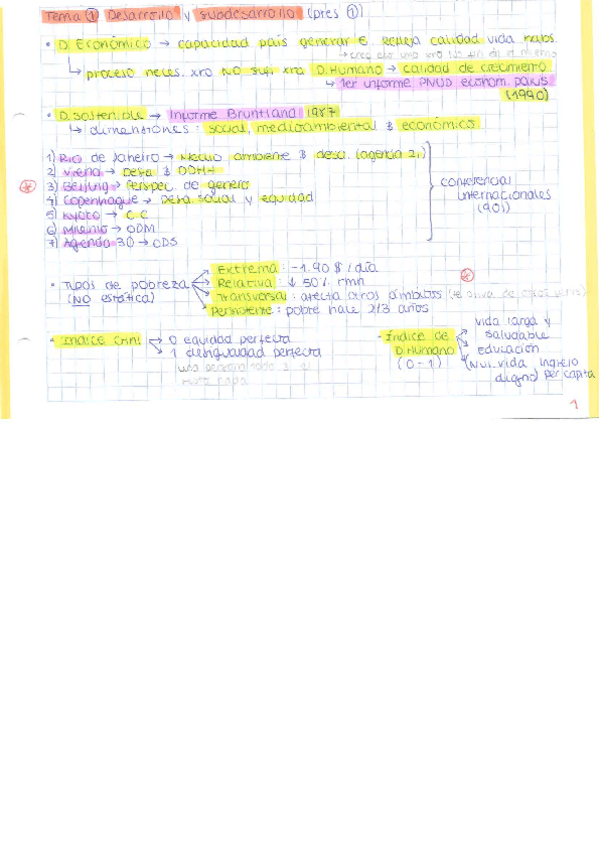 Tema ① Desarrollo y subdesarrollo (pres ①)
• D. Económico → capacidad país generar € refleja calidad vida habs.
↳ proceso neces. xro NO sufi. xra D. Humano → calidad de crecimiento
↳ 1er informe PNUD econom. países
(1990)
• D. Sostenible → Informe Bruntland 1987
↳ dimensiones: social, medioambiental & económico
1) Rio de Janeiro → Medio ambiente & desa. (agencia 21)
2) Viena → Desa & DDHH
3) Beijing → Perspec. de genero
4) Copenhague → Desa social y equidad
5) Kyoto → C.C
6) Milenio → ODM
7) Agenda 30 → ODS
conferencias
internacionales
(90s)
• Tipos de pobreza
(NO estática)
Extrema: -1.90 $ / día
Relativa: ↓ 50%
Transversal: afecta otros ámbitos
Persistente: pobre hace 2/3 años
• Indice Gini → 0 equidad perfecta
→ 1 desigualdad perfecta
• Índice de
D. Humano
(0-1)
vida larga y
saludable
educación
(Niv. vida
digno)
ingreso
per cápita
1